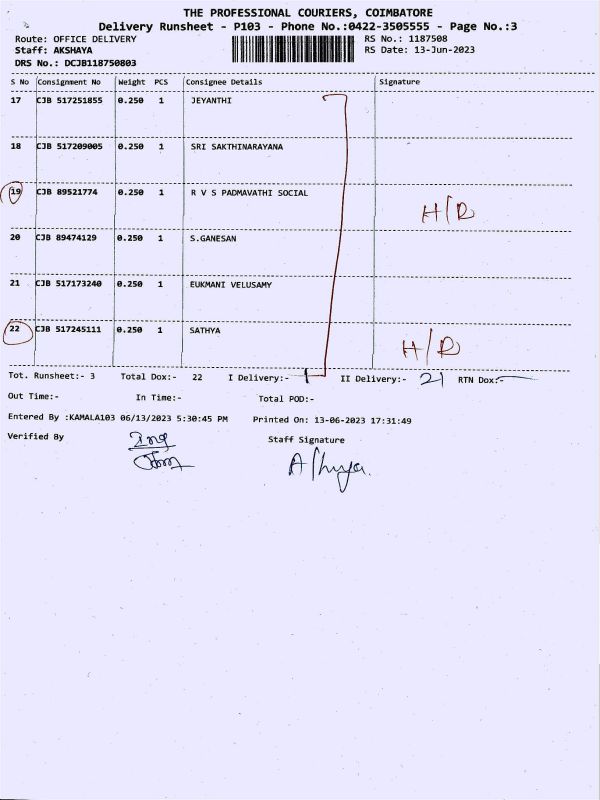 THE PROFESSIONAL COURIERS, COIMBATORE
Delivery Runsheet - P103 - Phone No.:0422-3505555 - Page No.:3
Route: OFFICE DELIVERY RS No.: 1187508
Staff: AKSHAYA RS Date: 13-Jun-2023
DRS No.: DCJB118750803
S No Consignment No Weight PCS Consignee Details Signature
17 CJB 517251855 0.250 1 JEYANTHI
18 CJB 517209005 0.250 1 SRI SAKTHINARAYANA
19 CJB 89521774 0.250 1 R V S PADMAVATHI SOCIAL H/R
20 CJB 89474129 0.250 1 S.GANESAN
21 CJB 517173240 0.250 1 EUKMANI VELUSAMY
22 CJB 517245111 0.250 1 SATHYA H/R
Tot. Runsheet:- 3 Total Dox:- 22 I Delivery:- 1 II Delivery:- 21 RTN Dox:-
Out Time:- In Time:- Total POD:-
Entered By :KAMALA103 06/13/2023 5:30:45 PM Printed On: 13-06-2023 17:31:49
Verified By Staff Signature